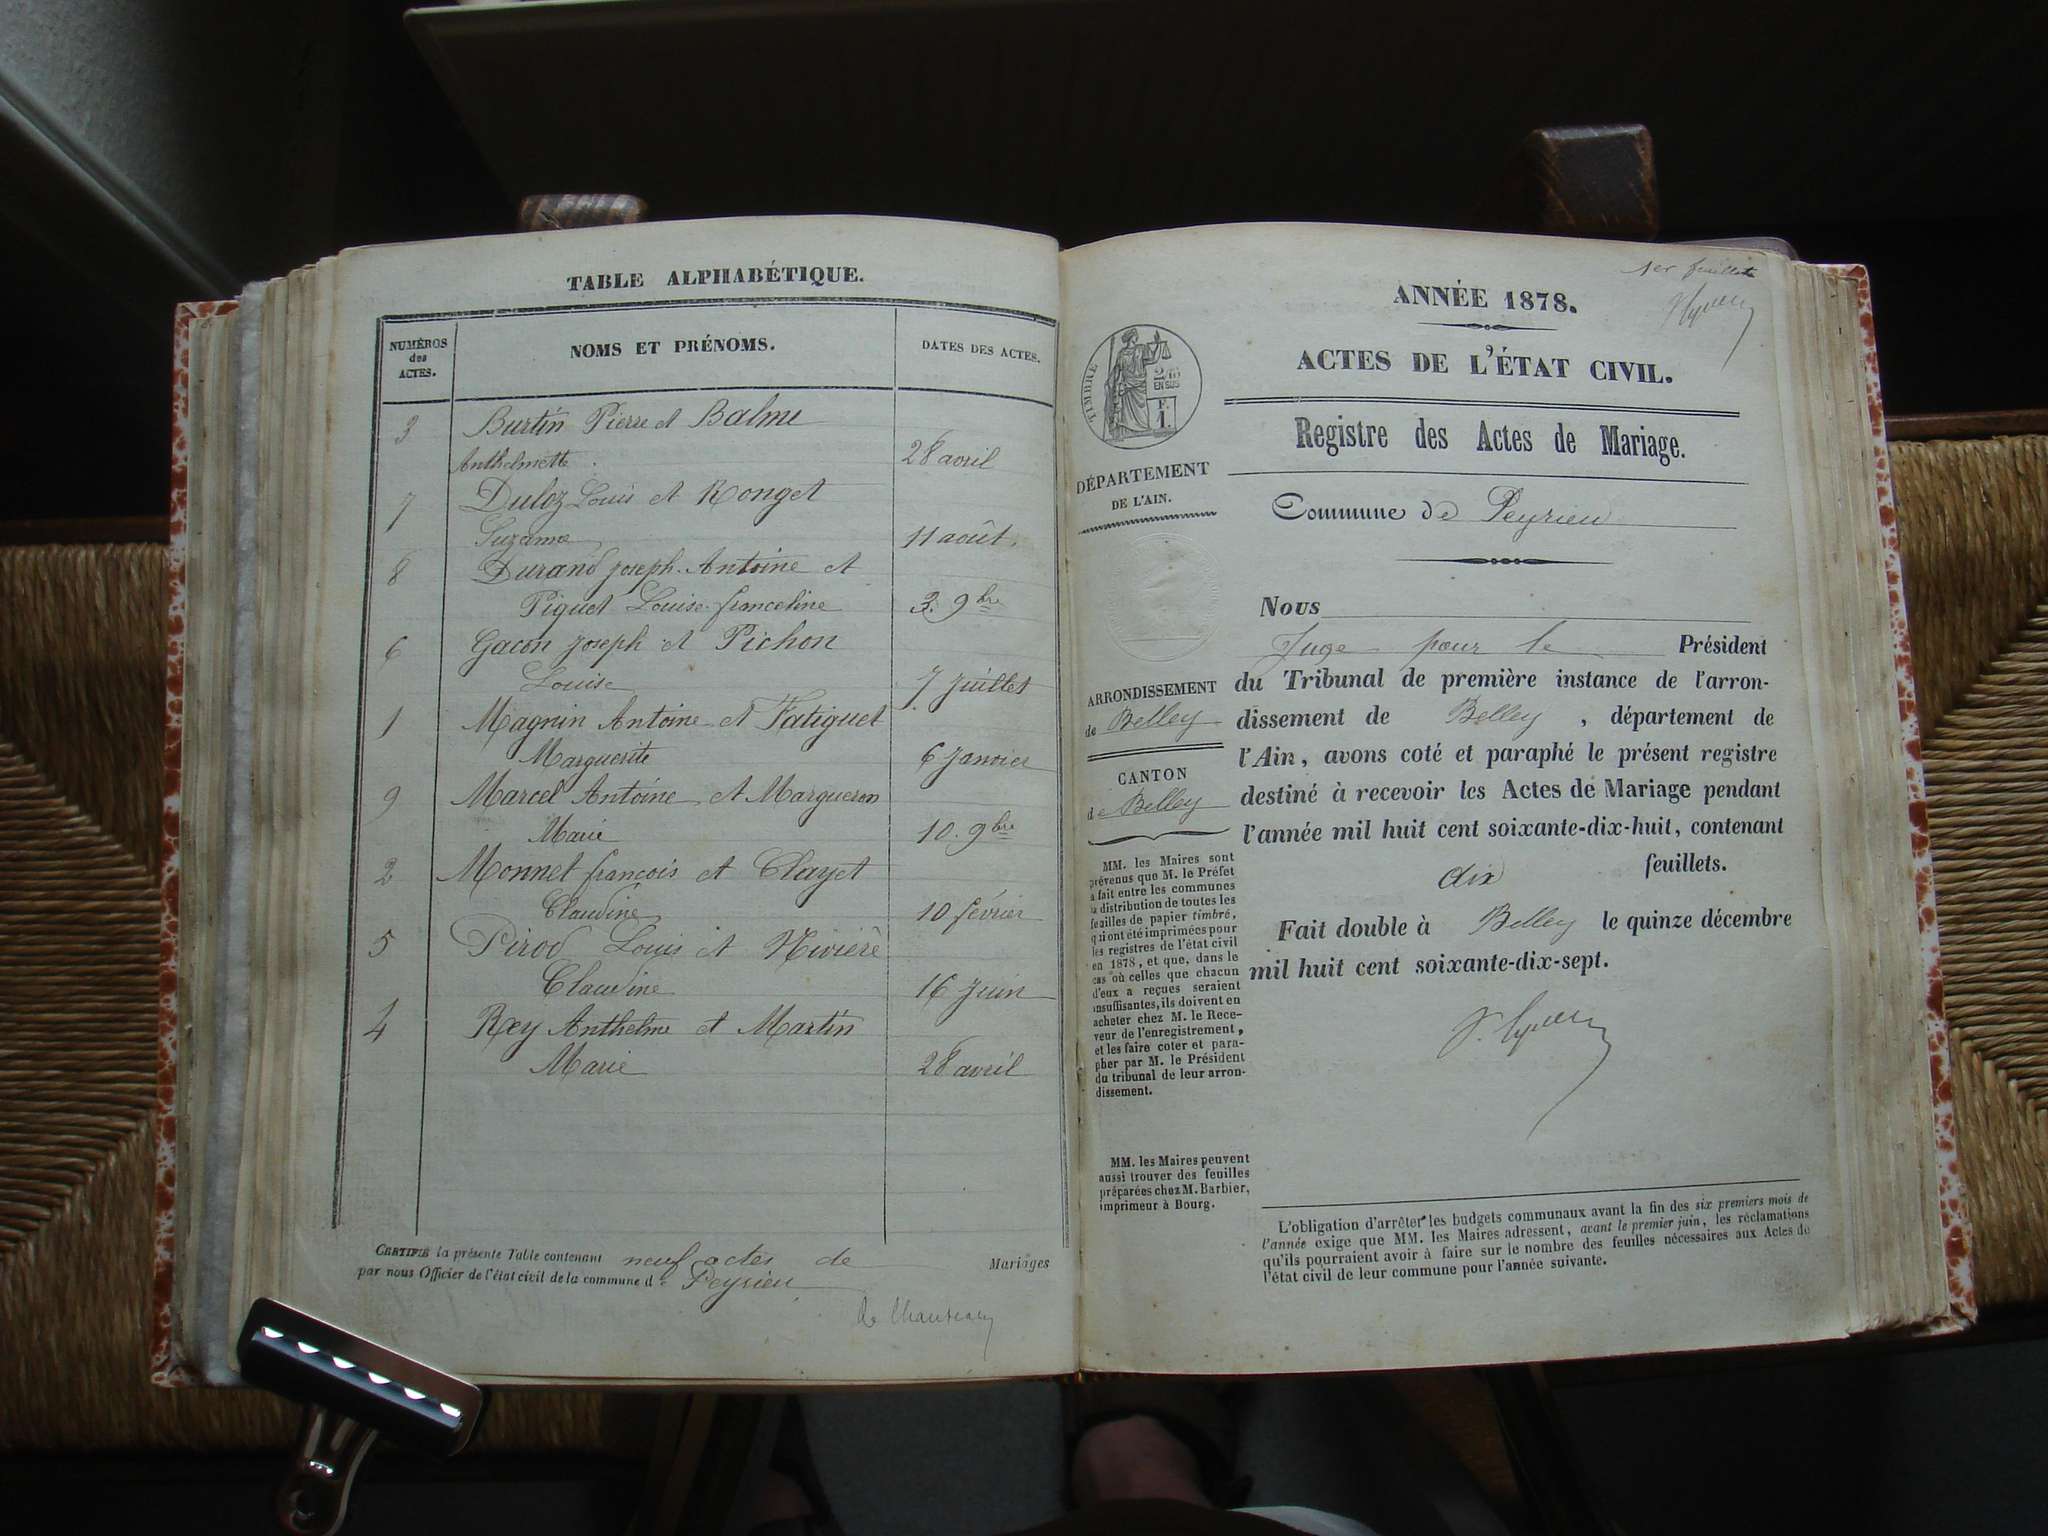 TABLE ALPHABÉTIQUE.
NUMÉROS des ACTES.
NOMS ET PRÉNOMS.
DATES DES ACTES.
3 Burtin Pierre et Balme
Anthelmette. 28 avril
7 Duloz Louis et Ronget
Suzanne 11 août.
8 Durand joseph-Antoine et
Piguet Louise-franceline 3. 9bre
6 Gacon joseph et Pichon
Louise 7 juillet
1 Magnin Antoine et Fatiguet
Marguerite 6 janvier
9 Marcel Antoine et Margueron
Marie 10. 9bre
2 Monnet françois et Clayet
Claudine 10 février
5 Pirod Louis et Rivière
Claudine 16 juin
4 Rey Anthelme et Martin
Marie 28 avril
CERTIFIÉ la présente Table contenant neuf actes de Mariages
par nous Officier de l'état civil de la commune de Peyrieu
1er feuillet
ANNÉE 1878.
ACTES DE L'ÉTAT CIVIL.
Registre des Actes de Mariage.
Commune de Peyrieu
TIMBRE
2/10
EN SUS
F.
1.
DÉPARTEMENT
DE L'AIN.
ARRONDISSEMENT
de Belley
CANTON
de Belley
MM. les Maires sont
prévenus que M. le Préfet
a fait entre les communes
la distribution de toutes les
feuilles de papier timbré,
qui ont été imprimées pour
les registres de l'état civil
en 1878, et que, dans le
cas où celles que chacun
d'eux a reçues seraient
insuffisantes, ils doivent en
acheter chez M. le Rece-
veur de l'enregistrement,
et les faire coter et para-
pher par M. le Président
du tribunal de leur arron-
dissement.
MM. les Maires peuvent
aussi trouver des feuilles
préparées chez M. Barbier,
imprimeur à Bourg.
Nous
Juge pour le Président
du Tribunal de première instance de l'arron-
dissement de Belley, département de
l'Ain, avons coté et paraphé le présent registre
destiné à recevoir les Actes de Mariage pendant
l'année mil huit cent soixante-dix-huit, contenant
dix feuillets.
Fait double à Belley le quinze décembre
mil huit cent soixante-dix-sept.
L'obligation d'arrêter les budgets communaux avant la fin des six premiers mois de
l'année exige que MM. les Maires adressent, avant le premier juin, les réclamations
qu'ils pourraient avoir à faire sur le nombre des feuilles nécessaires aux Actes de
l'état civil de leur commune pour l'année suivante.